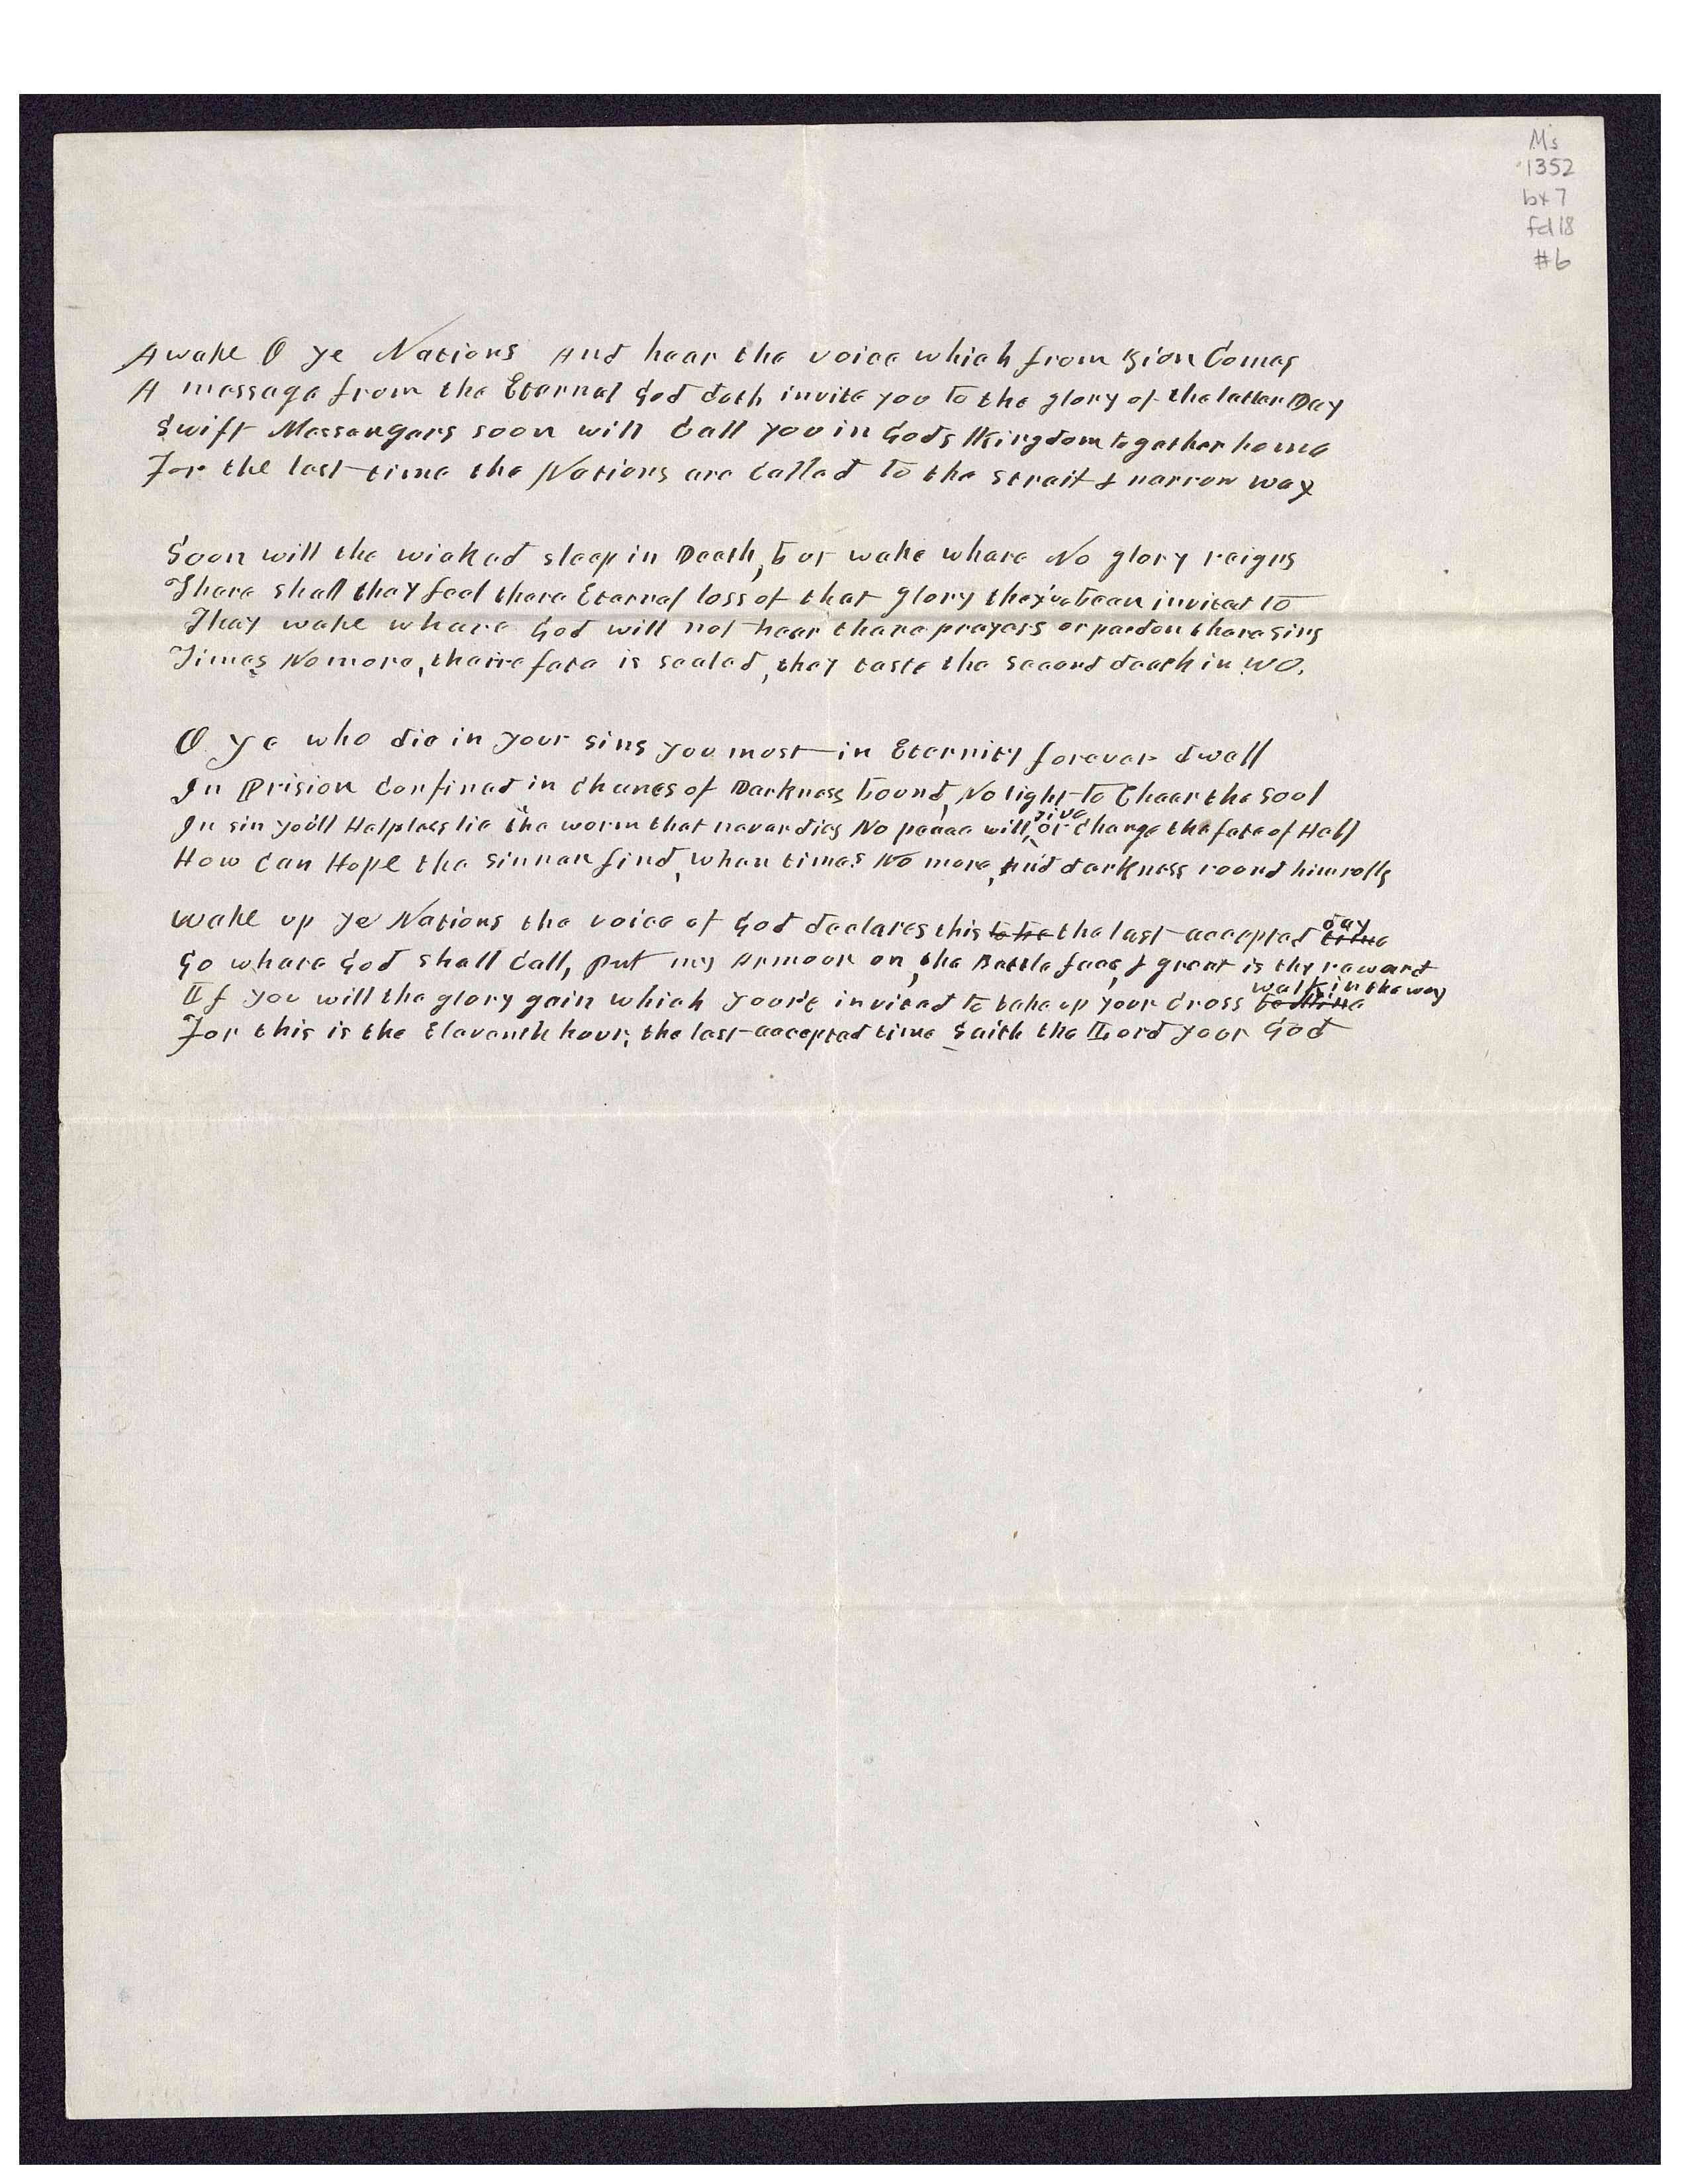 Ms
1352
bx 7
fd 18
#6
Awake O ye Nations And hear the voice which from Zion Comes
A message from the Eternal God doth invite you to the glory of the latter Day
Swift Messengers soon will Call you in Gods Kingdom to gether home
For the last time the Nations are Called to the strait & narrow way
Soon will the wicked sleep in Death, to wake where No glory reigns
There shall they feel there Eternal loss of that glory they've been invited to
They wake where God will not hear there prayers or pardon there sins
Times No more, theire fate is sealed, they taste the second death in WO.
O ye who die in your sins you must in Eternity forever dwell
In Prision Confined in Chanes of Darkness bound, No light to Cheer the soul
In sin you'll Helpless lie the worm that never dies No peace will give or Change the fate of Hell
How Can Hope the sinner find, when times No more, and darkness round him rolls
Wake up ye Nations the voice of God declares this to be the last accepted time day
Go where God shall Call, put my Armour on, the Battle face, & great is thy reward
If you will the glory gain which your'e invited to take up your Cross walk in the way
For this is the Eleventh hour, the last accepted time Saith the Lord your God